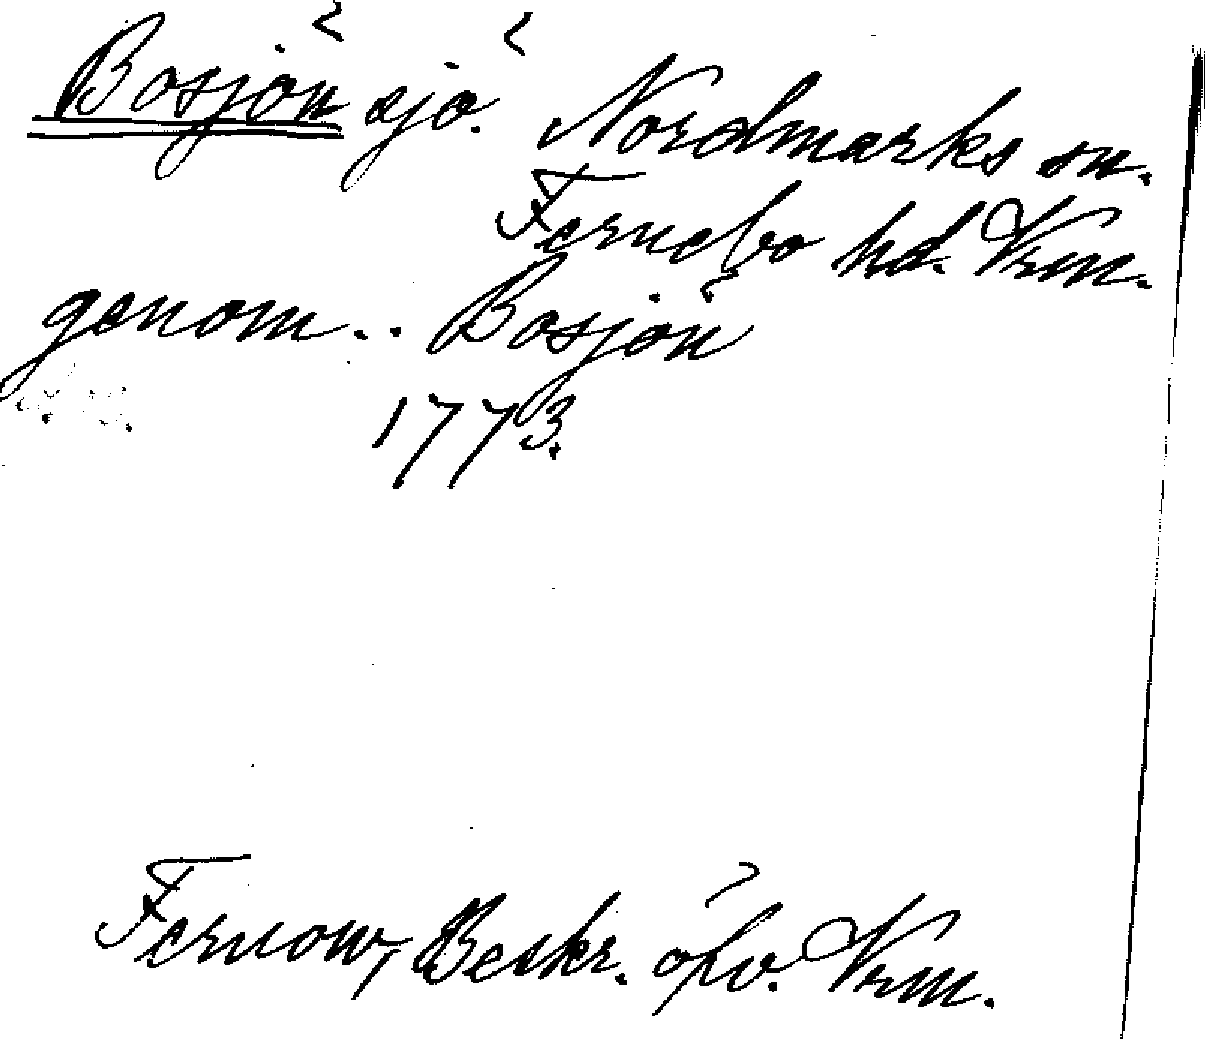 Bosjön sjö. Nordmarks sn.
Fernebo hd. Vrm.
genom.. Bosjön
1773.
Fernow, Beskr. öfv. Vrm.